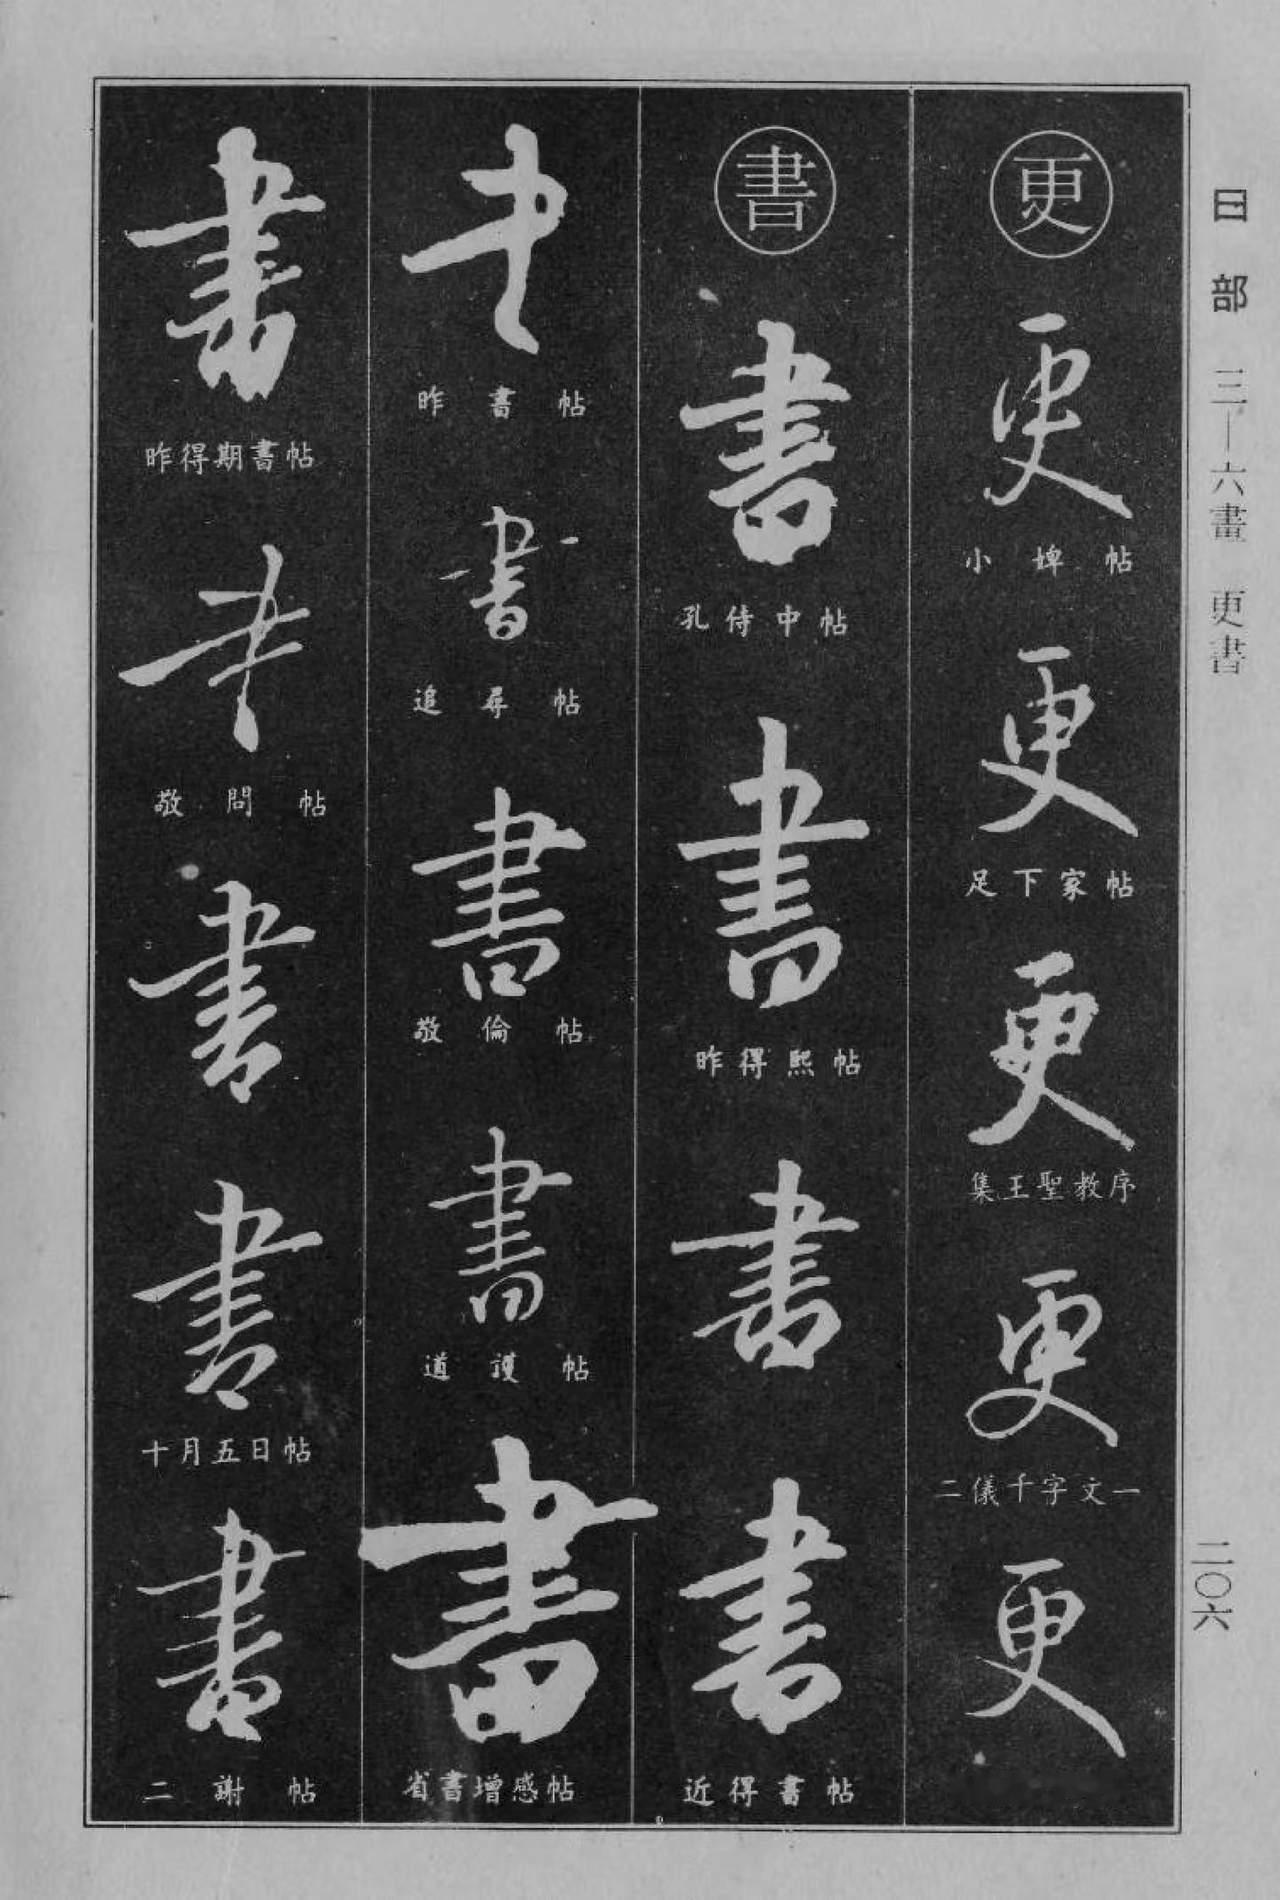 曰部 三—六畫 更書
二〇六
更
更
小婢帖
更
足下家帖
更
集王聖教序
更
二儀千字文一
更
書
書
孔侍中帖
書
昨得熙帖
書
書
近得書帖
書
昨書帖
書
追尋帖
書
敬倫帖
書
道護帖
書
省書增感帖
書
昨得期書帖
書
敬問帖
書
書
十月五日帖
書
二謝帖